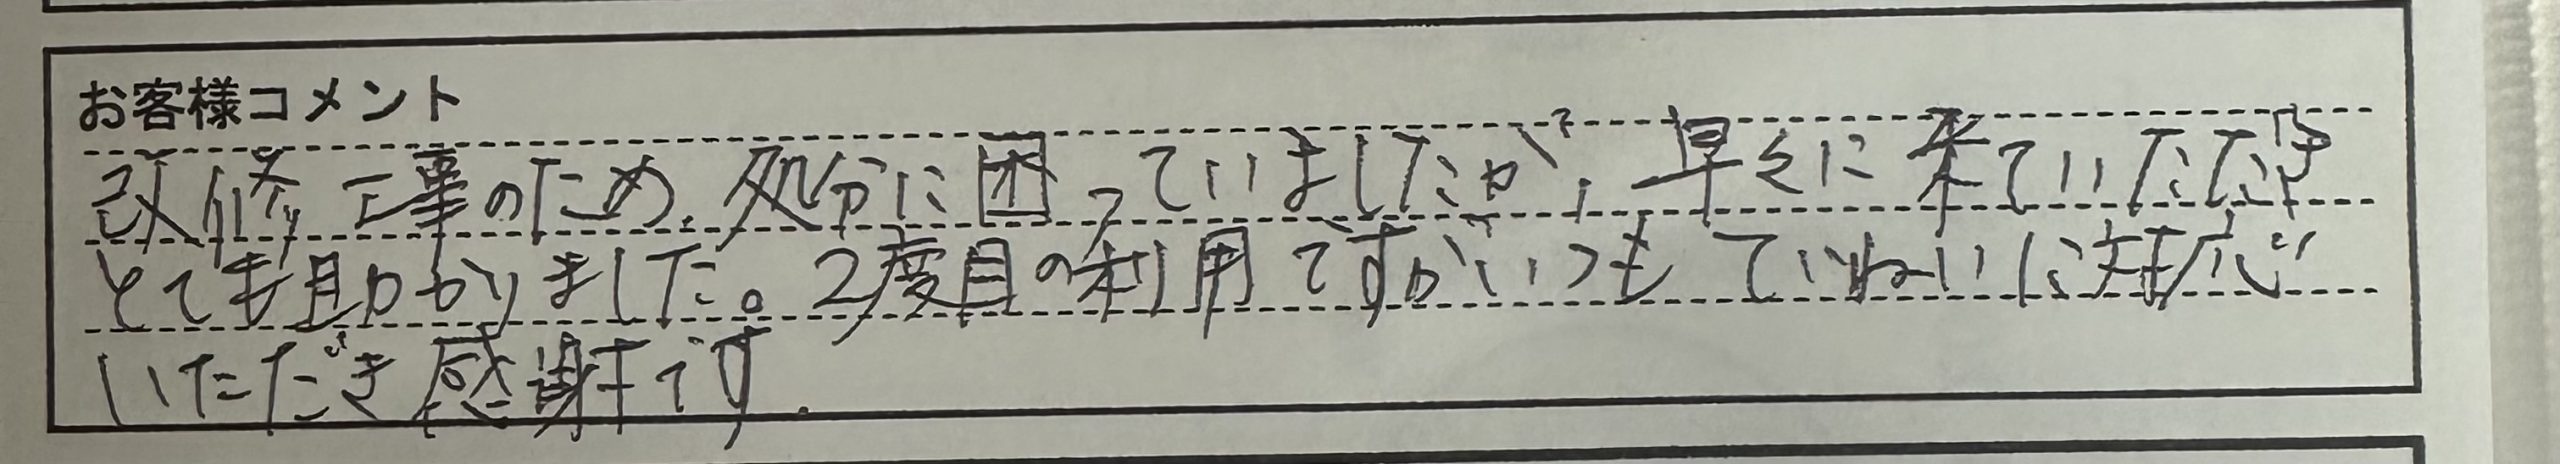 お客様コメント
改修工事のため、処分に困っていましたが、早くに来ていただき
とても助かりました。2度目の利用ですがいつもていねいに対応
いただき感謝です。